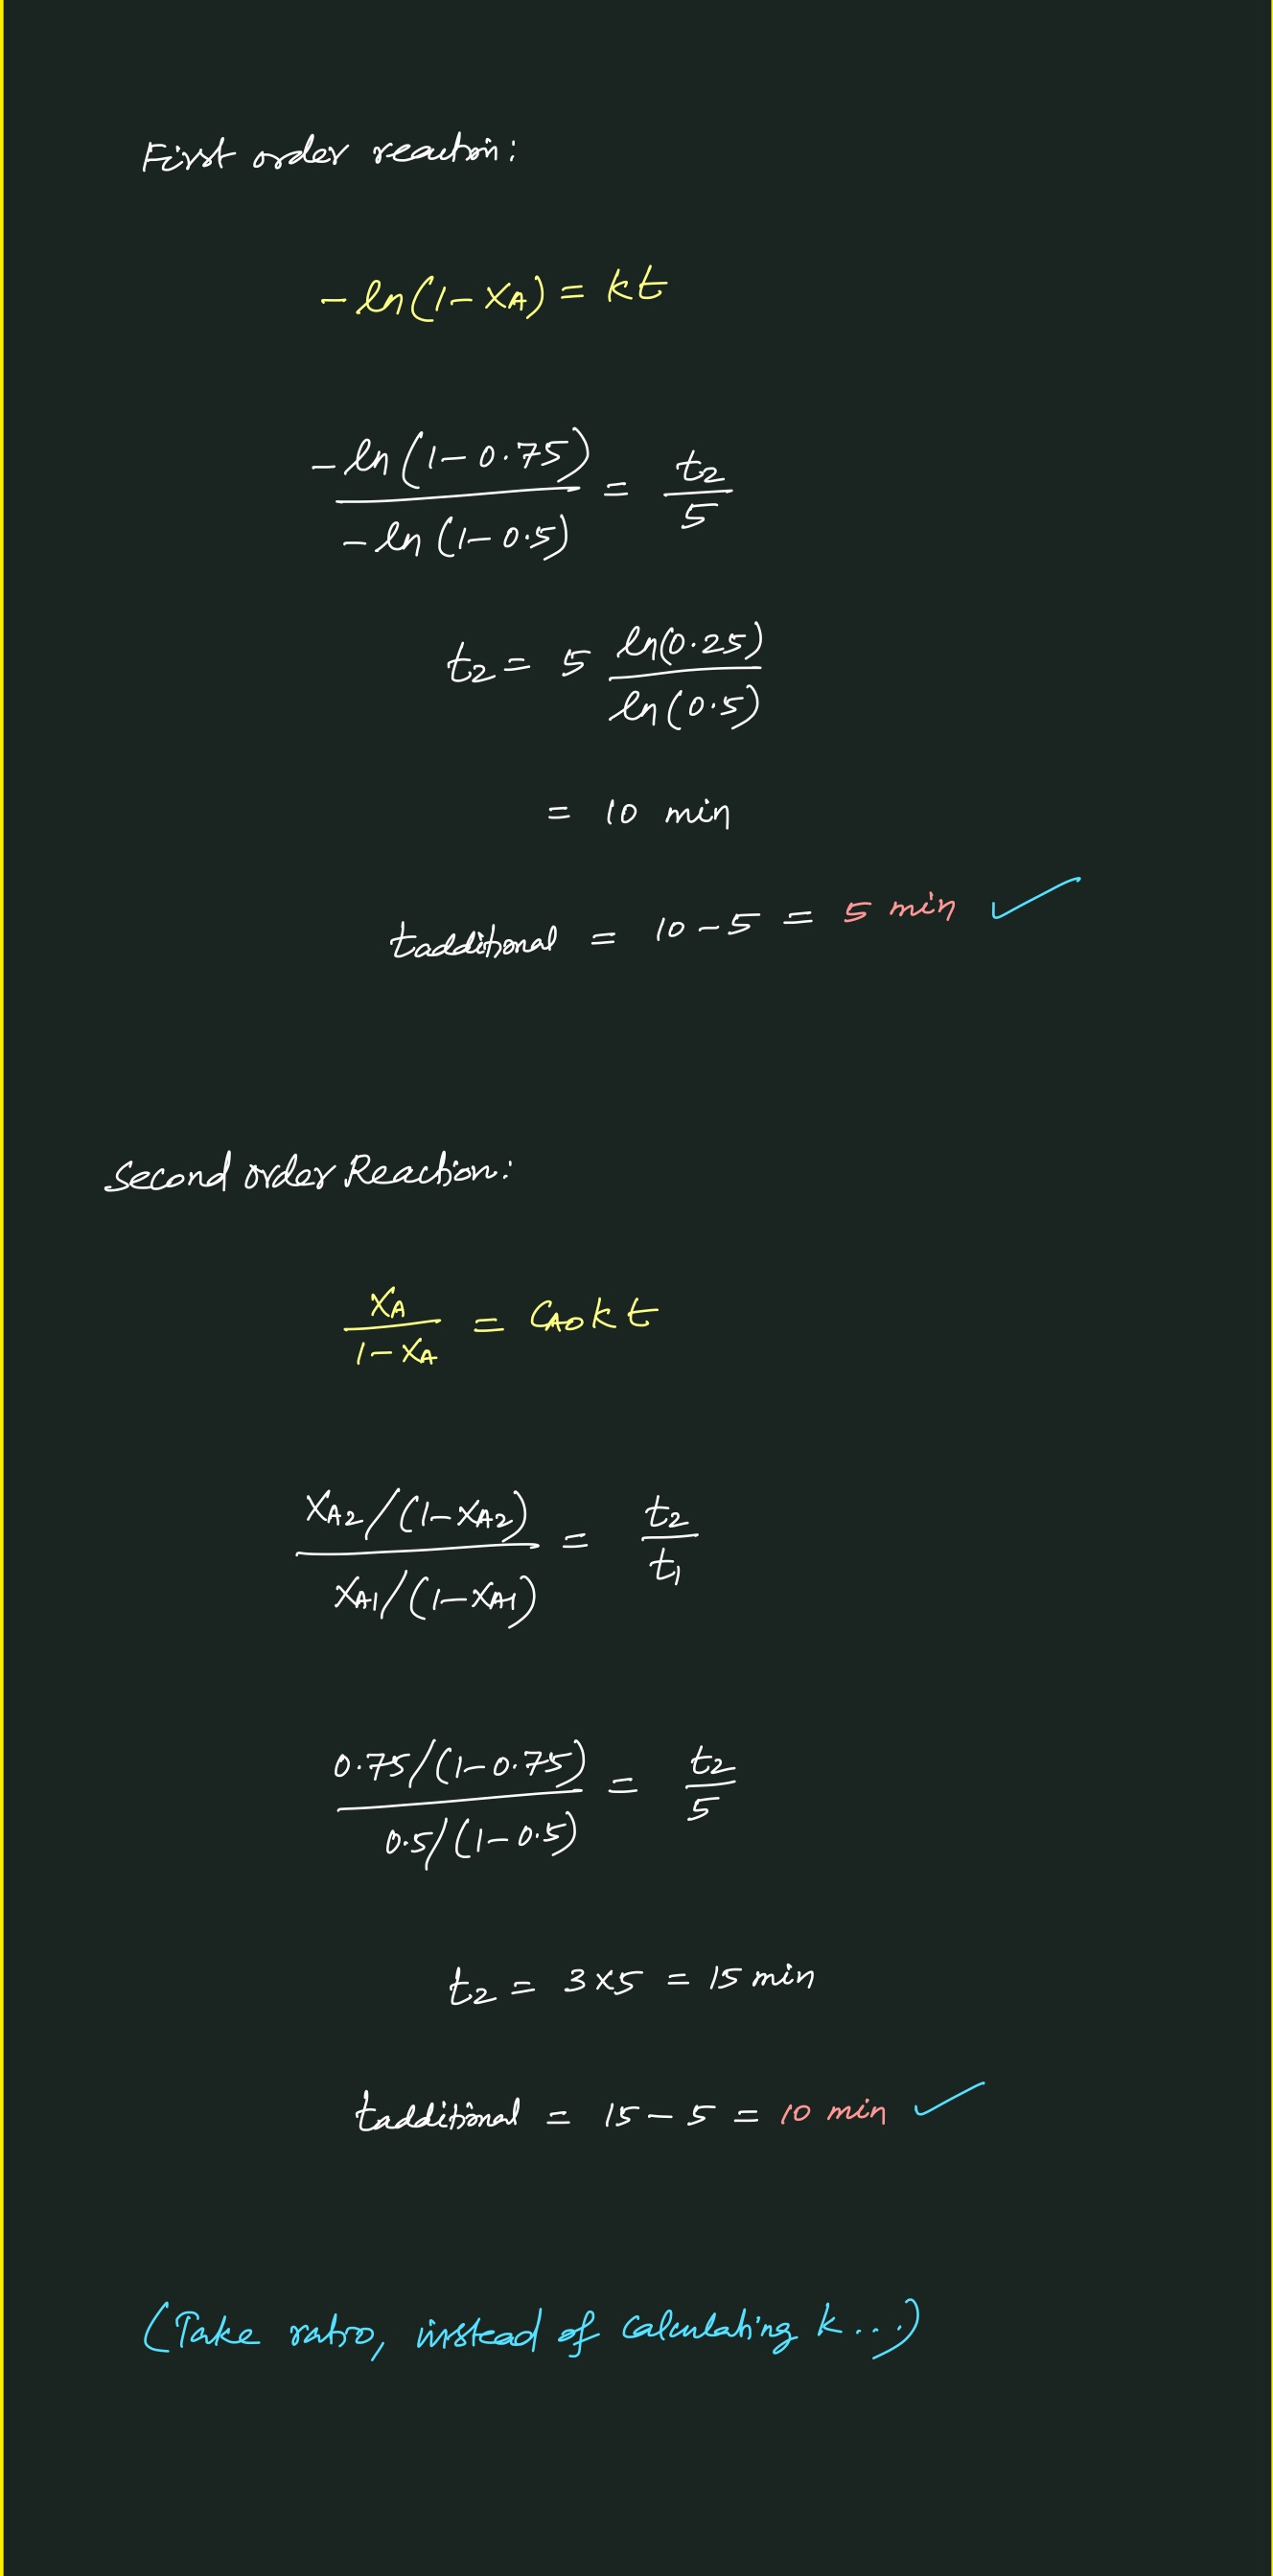 First order reaction:
-ln(1-XA) = kt
-ln(1-0.75) / -ln(1-0.5) = t2/5
t2 = 5 ln(0.25)/ln(0.5)
= 10 min
tadditional = 10-5 = 5 min ✓
Second order Reaction:
XA/1-XA = CA0kt
XA2/(1-XA2) / XA1/(1-XA1) = t2/t1
0.75/(1-0.75) / 0.5/(1-0.5) = t2/5
t2 = 3×5 = 15 min
tadditional = 15-5 = 10 min ✓
(Take ratio, instead of calculating k...)